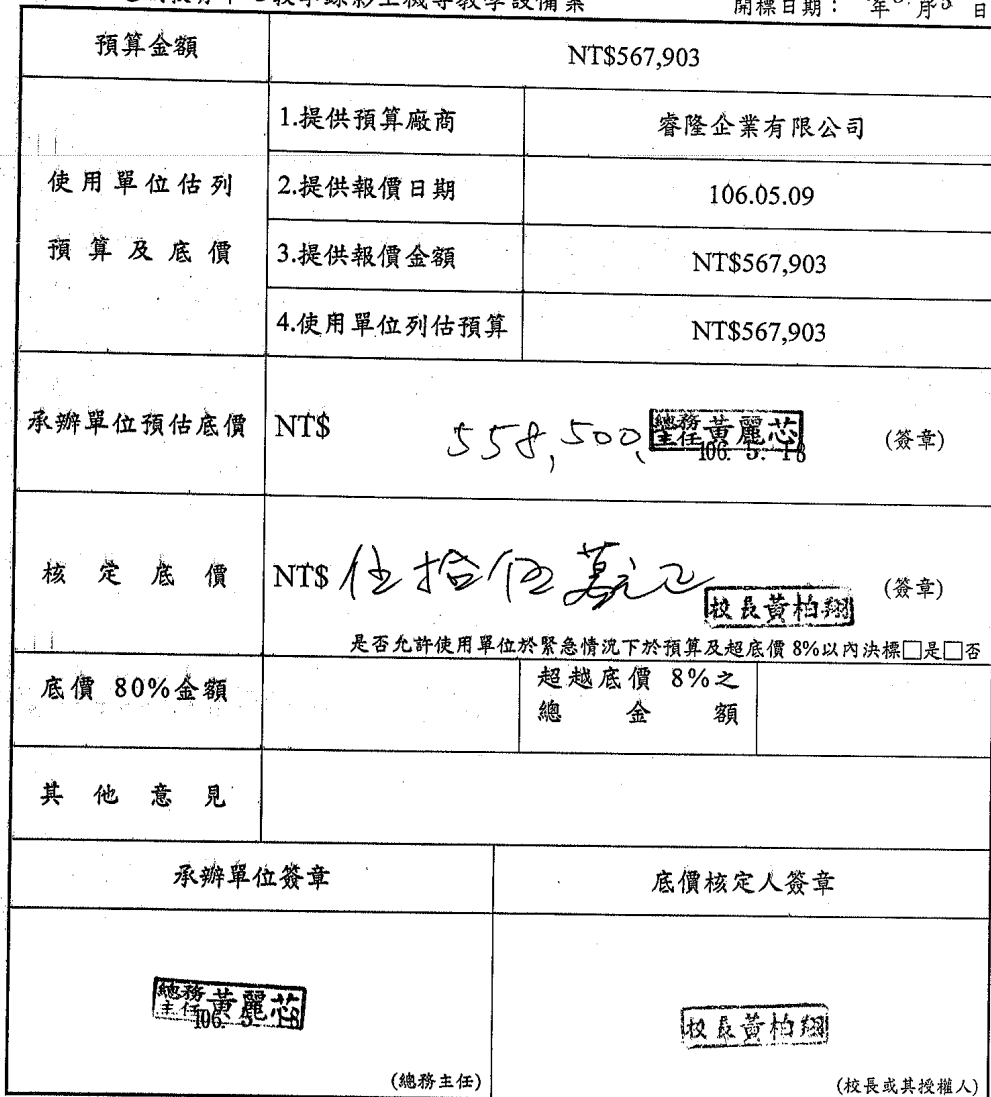 教學錄影主機等教學設備案 開標日期： 年 月 日
預算金額 NT$567,903
使用單位估列
預算及底價
1.提供預算廠商 睿隆企業有限公司
2.提供報價日期 106.05.09
3.提供報價金額 NT$567,903
4.使用單位列估預算 NT$567,903
承辦單位預估底價 NT$ 558,500 總務主任 黃麗芯 106. 5. 18 (簽章)
核定底價 NT$ 伍拾伍萬元 校長黃柏翔 (簽章)
是否允許使用單位於緊急情況下於預算及超底價 8%以內決標□是□否
底價 80%金額
超越底價 8%之
總金額
其他意見
承辦單位簽章 底價核定人簽章
總務主任 黃麗芯 106. 5. 18
校長黃柏翔
(總務主任) (校長或其授權人)